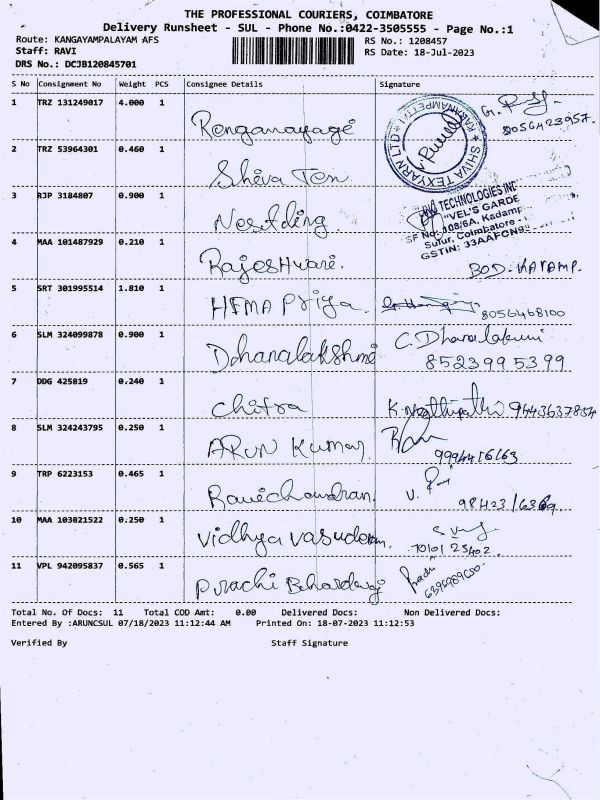 THE PROFESSIONAL COURIERS, COIMBATORE
Delivery Runsheet - SUL - Phone No.:0422-3505555 - Page No.:1
Route: KANGAYAMPALAYAM AFS RS No.: 1208457
Staff: RAVI RS Date: 18-Jul-2023
DRS No.: DCJB120845701
S No Consignment No Weight PCS Consignee Details Signature
1 TRZ 131249017 4.000 1 Renganayage 8056423957.
SHIVA TEXYARN LTD
2 TRZ 53964301 0.460 1 Shiva Tex
3 RJP 3184807 0.900 1
TECHNOLOGIES INC
"VEL'S GARDE
SF No: 108/6A, Kadamp
Sulur, Coimbatore -
GSTIN: 33AAFCN9
4 MAA 101487929 0.210 1 Rajeshwari.
5 SRT 301995514 1.810 1 HEMA Priya. 8056468100
6 SLM 324099878 0.900 1 Dhanalakshmi C. Dhanalakshmi
8523995399
7 DDG 425819 0.240 1 Chitra 9443637854
8 SLM 324243795 0.250 1 ARUN Kumar
9994416163
9 TRP 6223153 0.465 1 Ravichandran. V.
10 MAA 103821522 0.250 1 Vidhya Vasudevan.
7010125402
11 VPL 942095837 0.565 1 Prachi
Total No. Of Docs: 11 Total COD Amt: 0.00 Delivered Docs: Non Delivered Docs:
Entered By :ARUNCSUL 07/18/2023 11:12:44 AM Printed On: 18-07-2023 11:12:53
Verified By Staff Signature